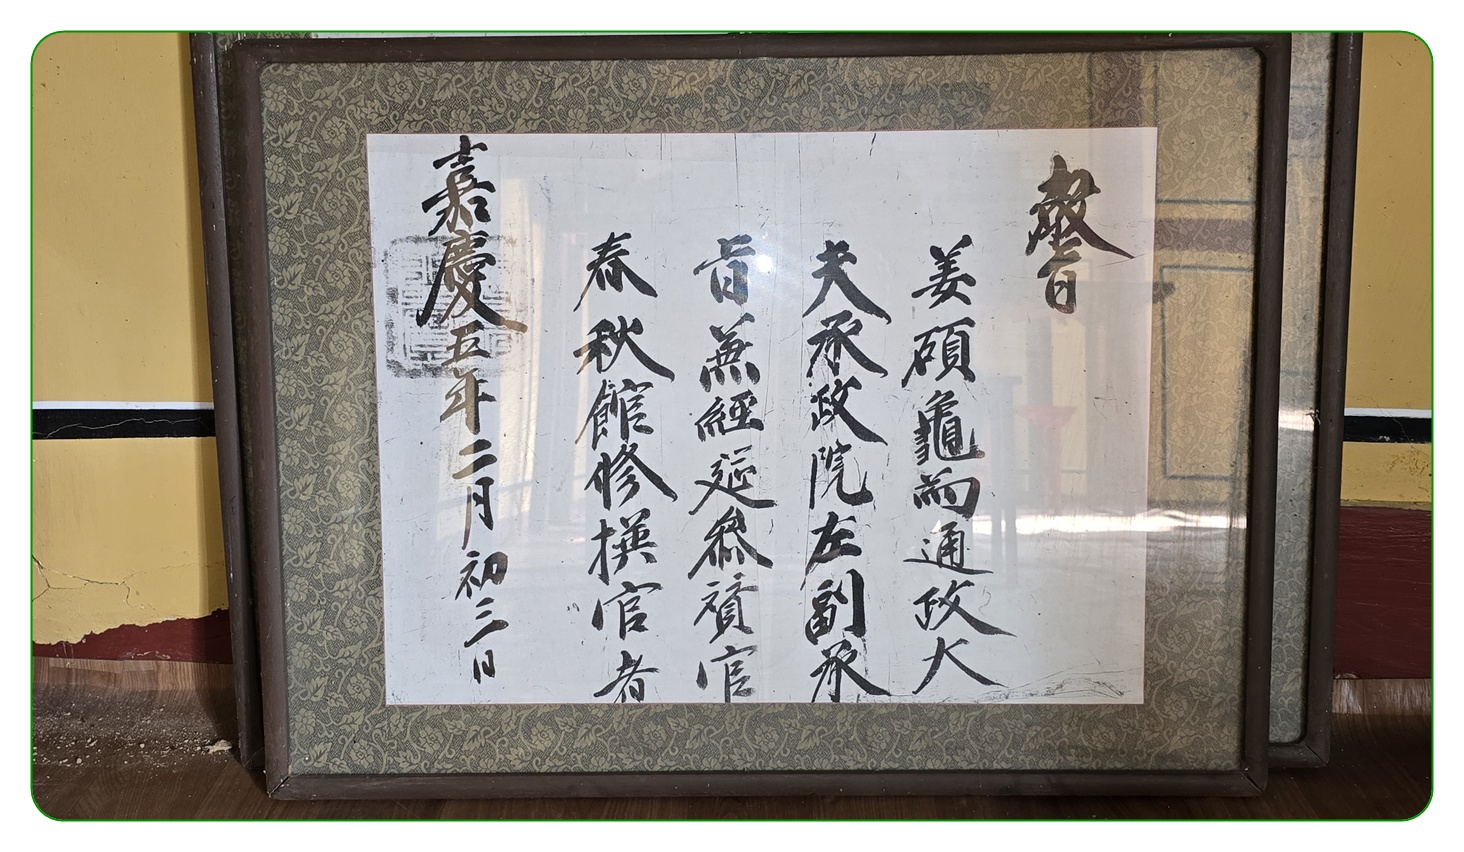 敎旨
姜碩龜爲通政大
夫承政院左副承
旨兼經筵參贊官
春秋館修撰官者
嘉慶五年二月初三日